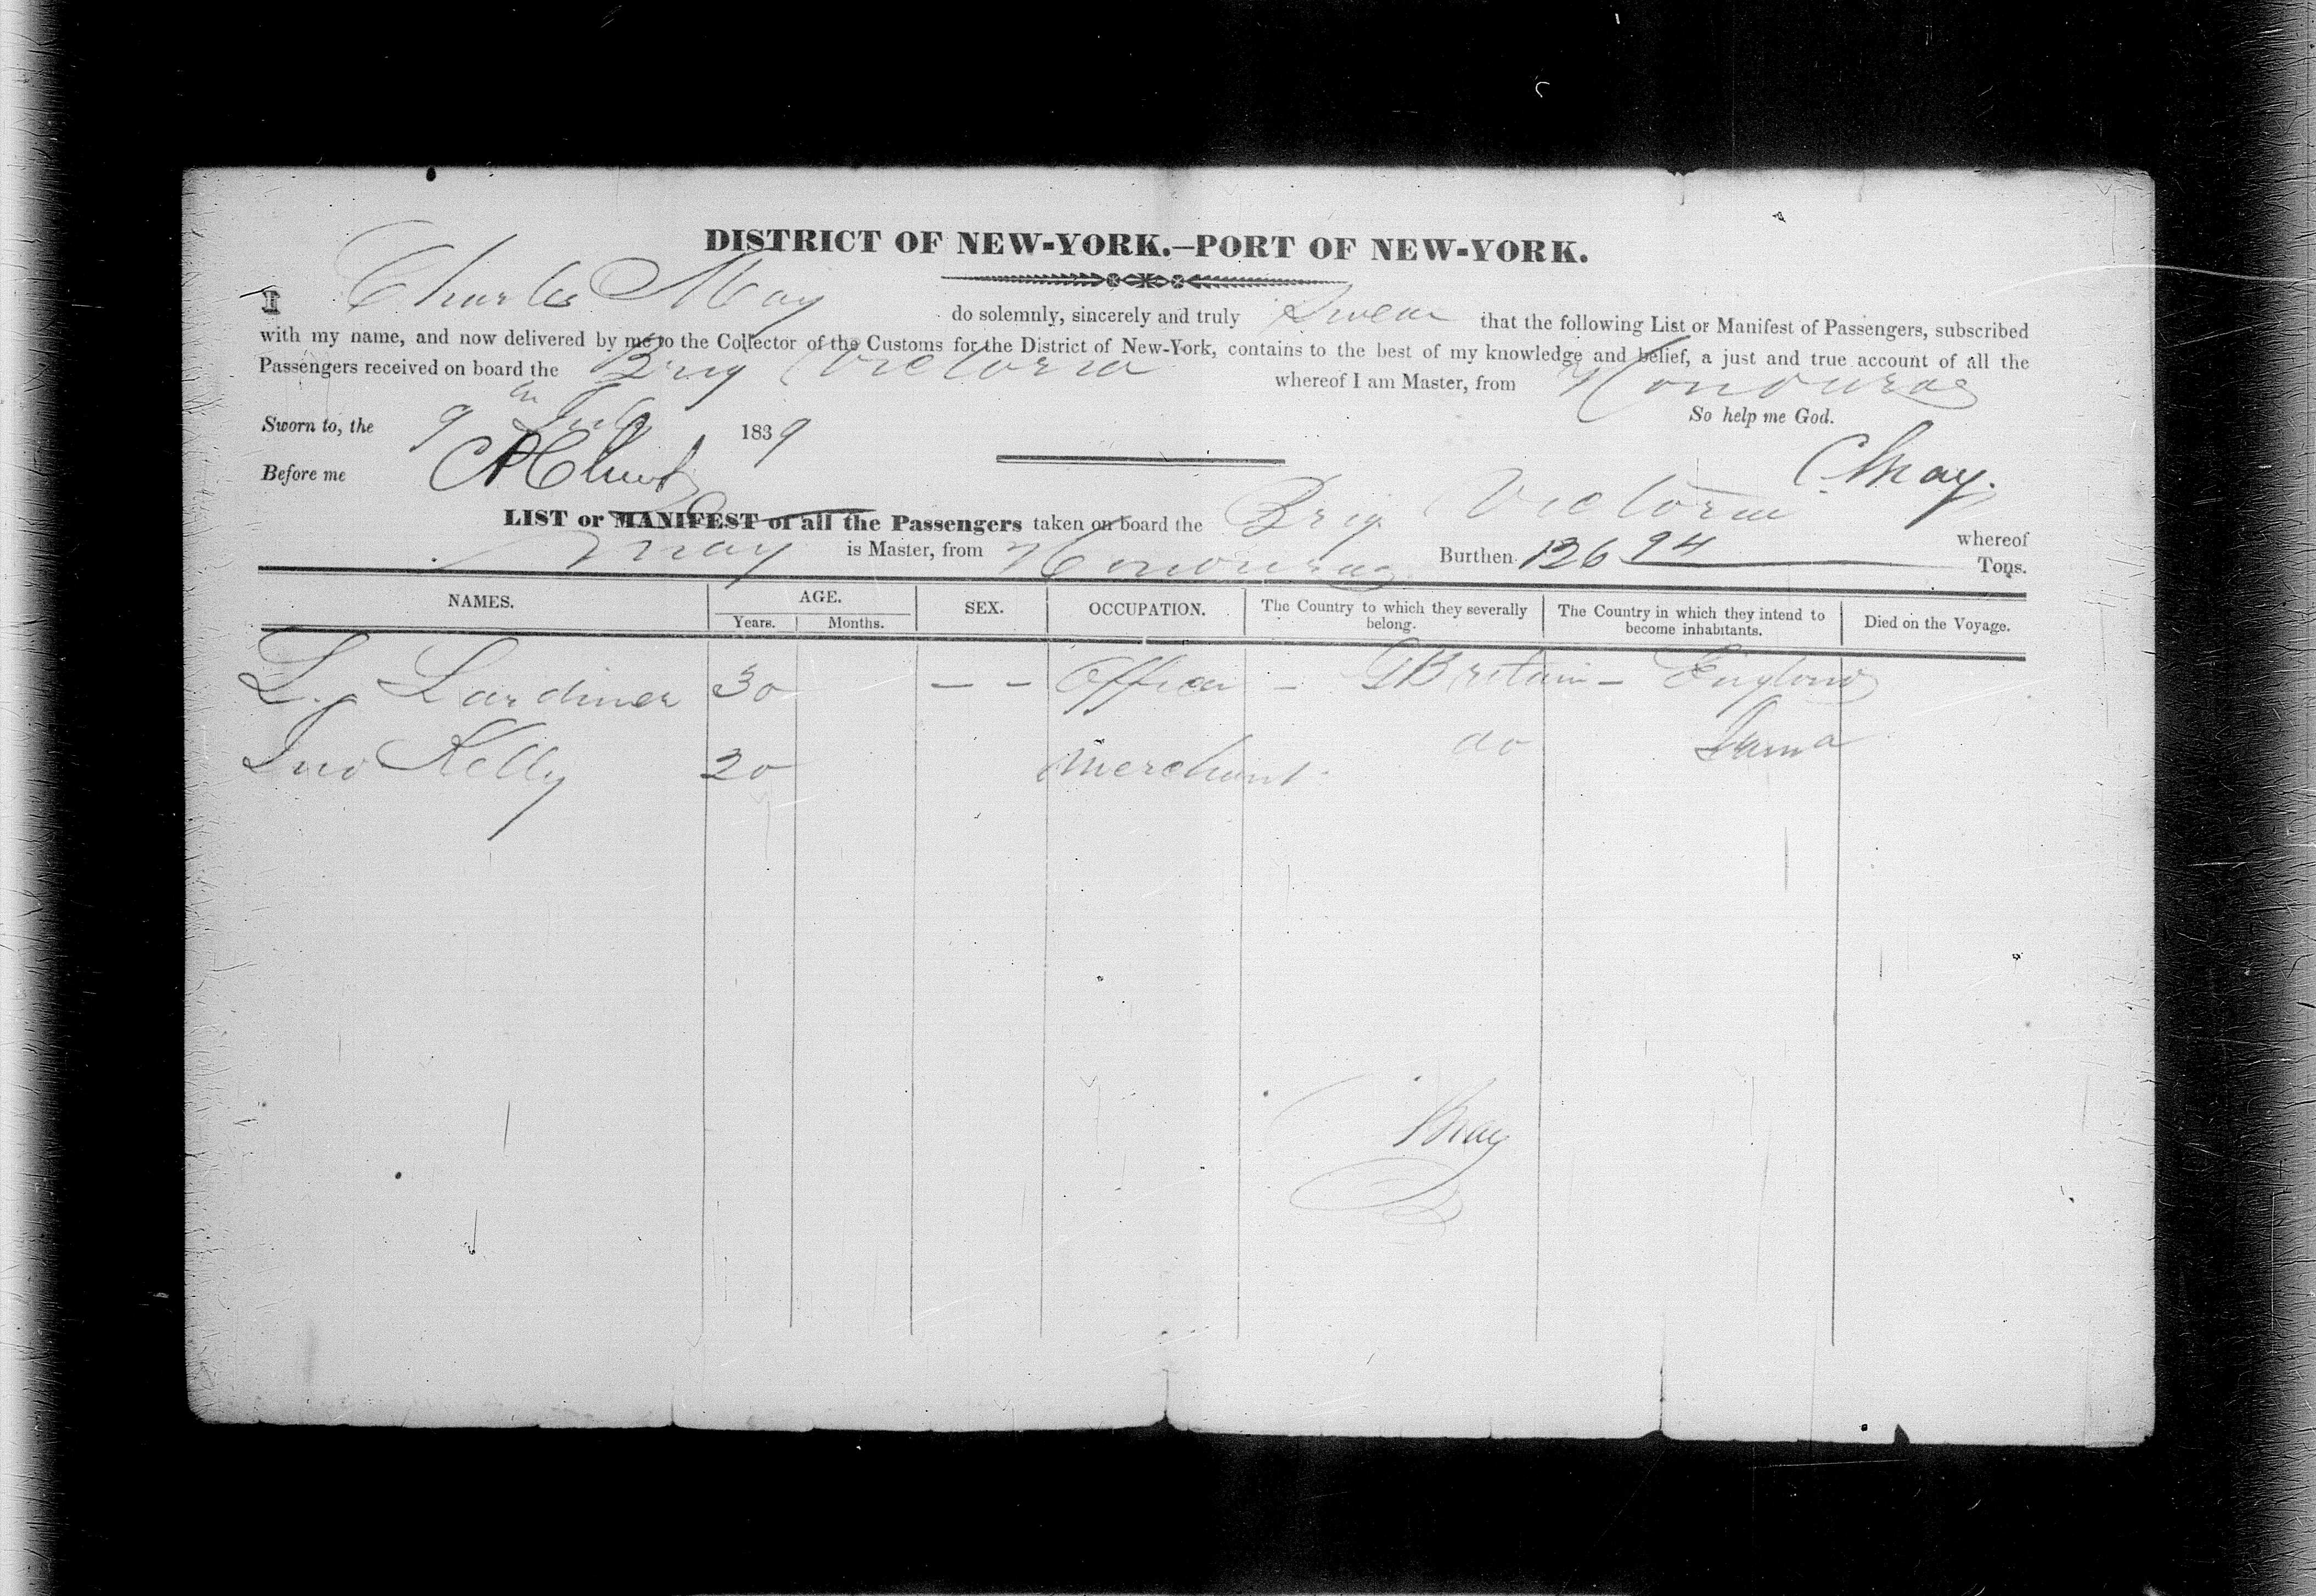 DISTRICT OF NEW-YORK.—PORT OF NEW-YORK.
I Charles May do solemnly, sincerely and truly Swear that the following List or Manifest of Passengers, subscribed
with my name, and now delivered by me to the Collector of the Customs for the District of New-York, contains to the best of my knowledge and belief, a just and true account of all the
Passengers received on board the Brig Victoria whereof I am Master, from Honduras
So help me God.
Sworn to, the 9 July 1839
C May.
Before me
LIST or MANIFEST of all the Passengers taken on board the Brig Victoria whereof
May is Master, from Honduras Burthen 126 94 Tons.
NAMES. AGE. SEX. OCCUPATION. The Country to which they severally belong. The Country in which they intend to become inhabitants. Died on the Voyage.
Years. Months.
L. Lardiner 30 - - Officer - GBritain - England
Jno Kelly 20 Merchant do
May